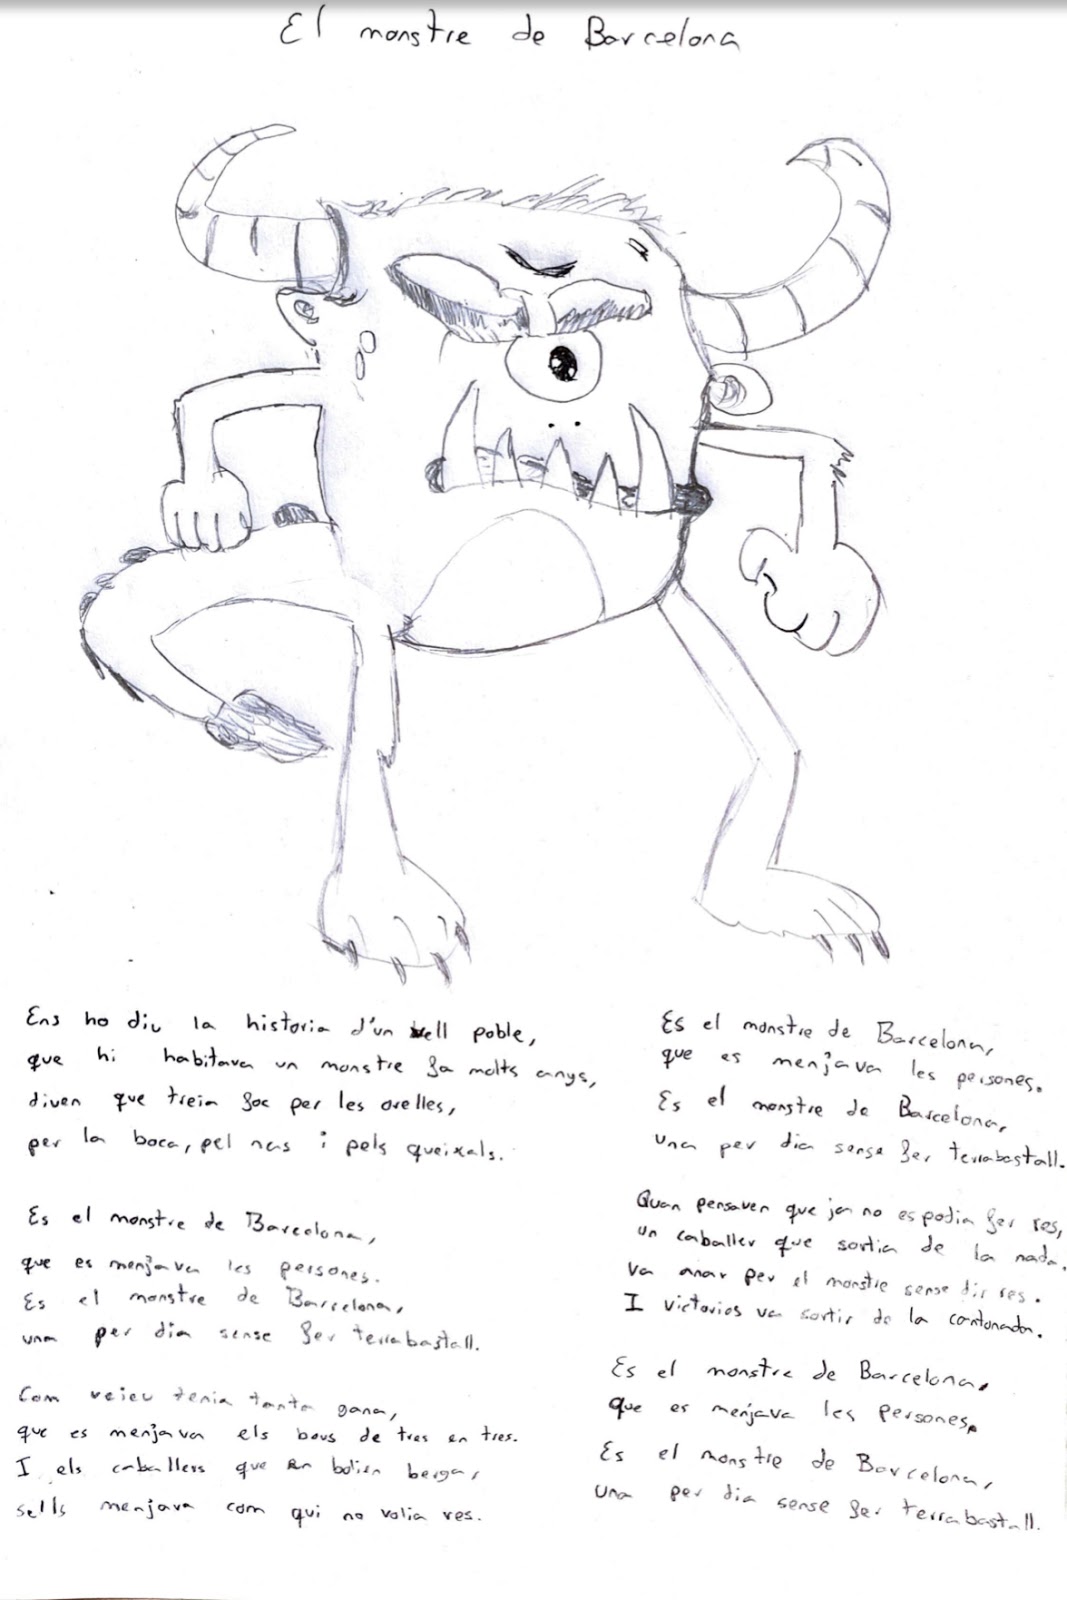 El monstre de Barcelona
Ens ho diu la historia d'un vell poble,
que hi habitava un monstre fa molts anys,
diven que treia foc per les orelles,
per la boca, pel nas i pels queixals.
Es el monstre de Barcelona,
que es menjava les persones.
Es el monstre de Barcelona,
una per dia sense fer terrabastall.
Com veieu tenia tanta gana,
que es menjava els bous de tres en tres.
I els caballers que en bolien berga,
sells menjava com qui no volia res.
Es el monstre de Barcelona,
que es menjava les persones.
Es el monstre de Barcelona,
una per dia sense fer terrabastall.
Quan pensaven que ja no es podia fer res,
un caballer que sortia de la nada.
va anar per el monstre sense dir res.
I victorios va sortir de la cantonada.
Es el monstre de Barcelona,
que es menjava les persones.
Es el monstre de Barcelona,
una per dia sense fer terrabastall.